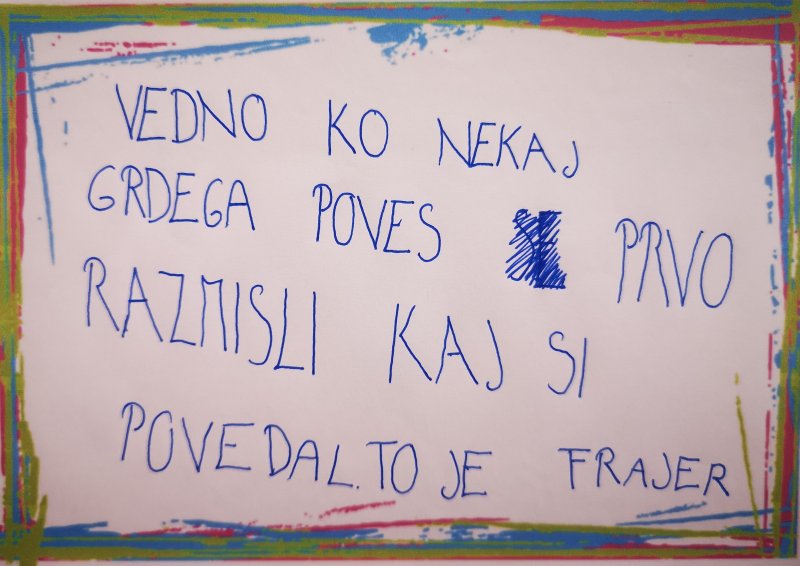 VEDNO KO NEKAJ
GRDEGA POVES PRVO
RAZMISLI KAJ SI
POVEDAL. TO JE FRAJER